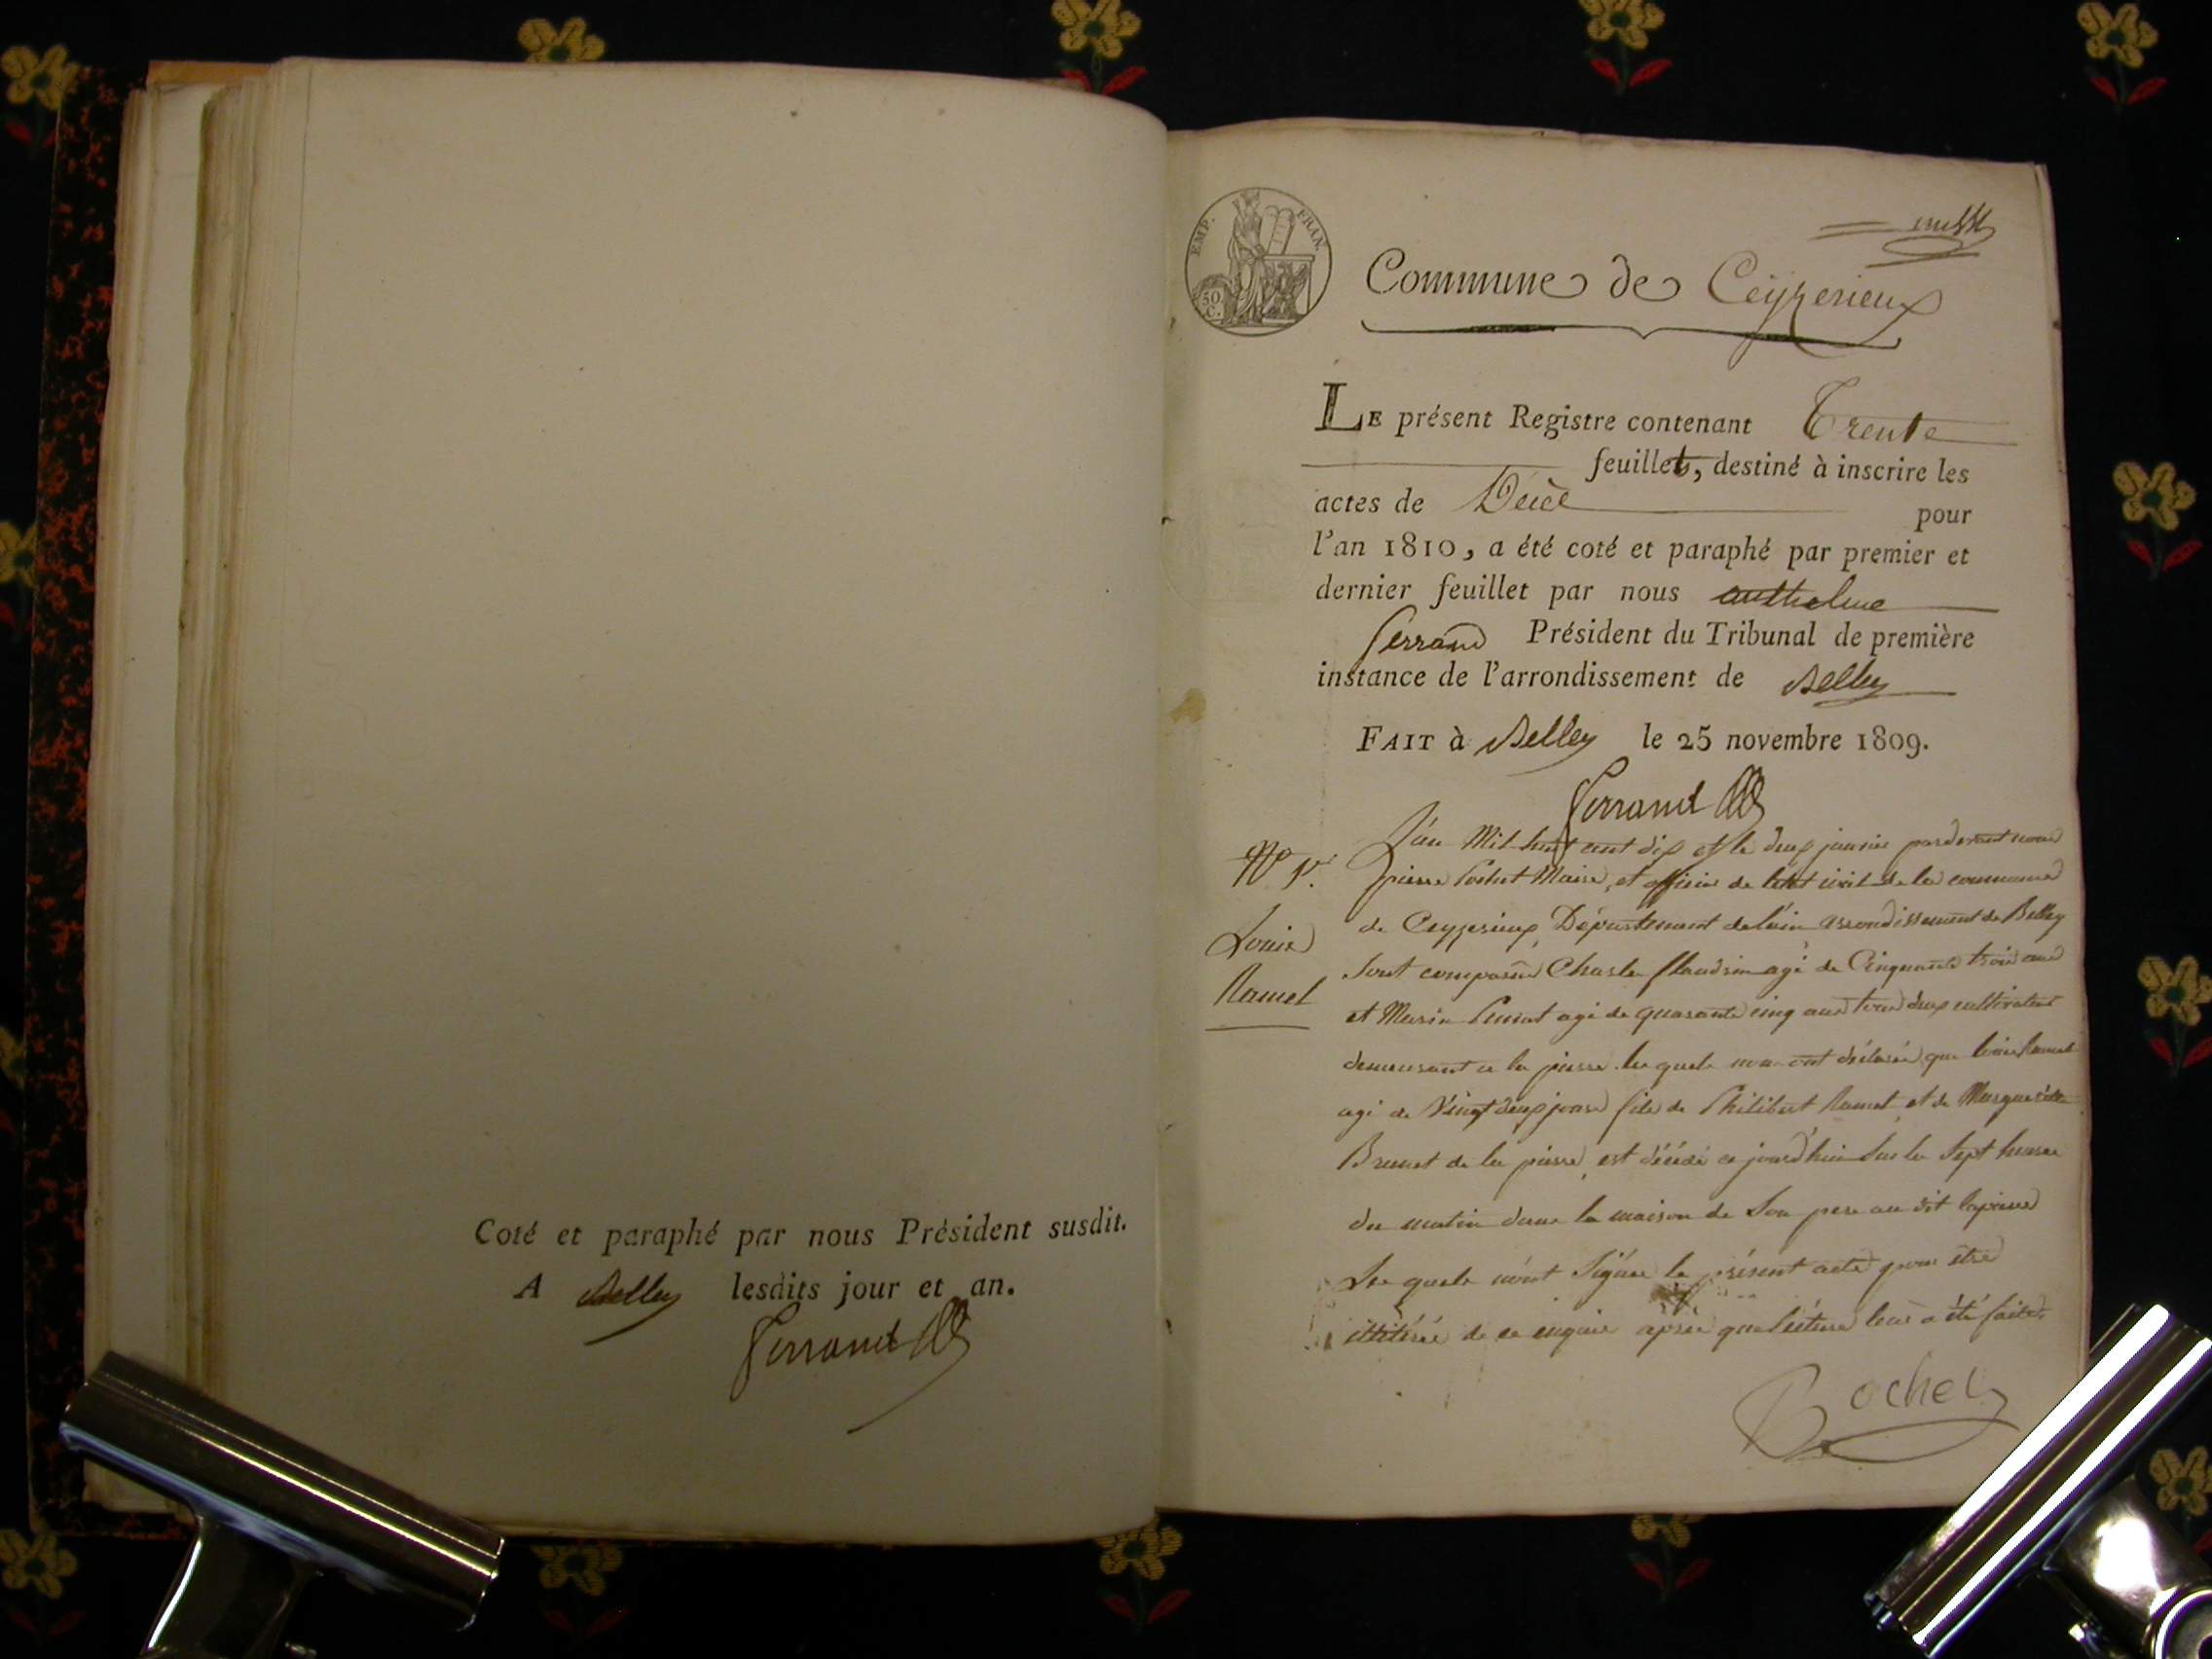 Coté et paraphé par nous Président susdit.
A Belley lesdits jour et an.
Ferrand
EMP. FRAN.
50 C.
Commune de Ceyzerieux
LE présent Registre contenant Trente
feuillets, destiné à inscrire les
actes de Décè pour
l'an 1810, a été coté et paraphé par premier et
dernier feuillet par nous anthelme
ferrand Président du Tribunal de première
instance de l'arrondissement de Belley
FAIT à Belley le 25 novembre 1809.
Ferrand
N° 1er
Louis
Ramel
L'an Mil huit cent dix et le deux janvier pardevant nous
pierre Maire, et officier de letat civil de la commune
de Ceyzerieux, Département de l'ain arrondissement de Belley
Sont comparu Charle flandrin agé de Cinquante trois ans
et agé de quarante cinq ans tous deux cultivateur
demeurant a la pierre. les quels nous ont déclaré que louis Ramel
agé de Vingt deux jours fils de Philibert Ramel et de Marguerite
Brunet de la pierre, est décédé ce jourd'hui Sur les Sept heures
du matin dans la maison de Son pere au dit lapierre
Les quels n'ont Signé le présent acte pour être
illitéré de ce enquis après que lecture leur a été faite.
Bochet